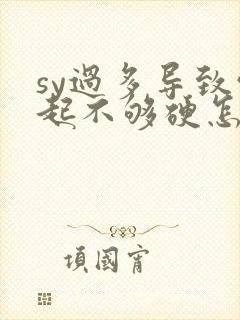 sy過多导致
起不够硬怎
項國宵